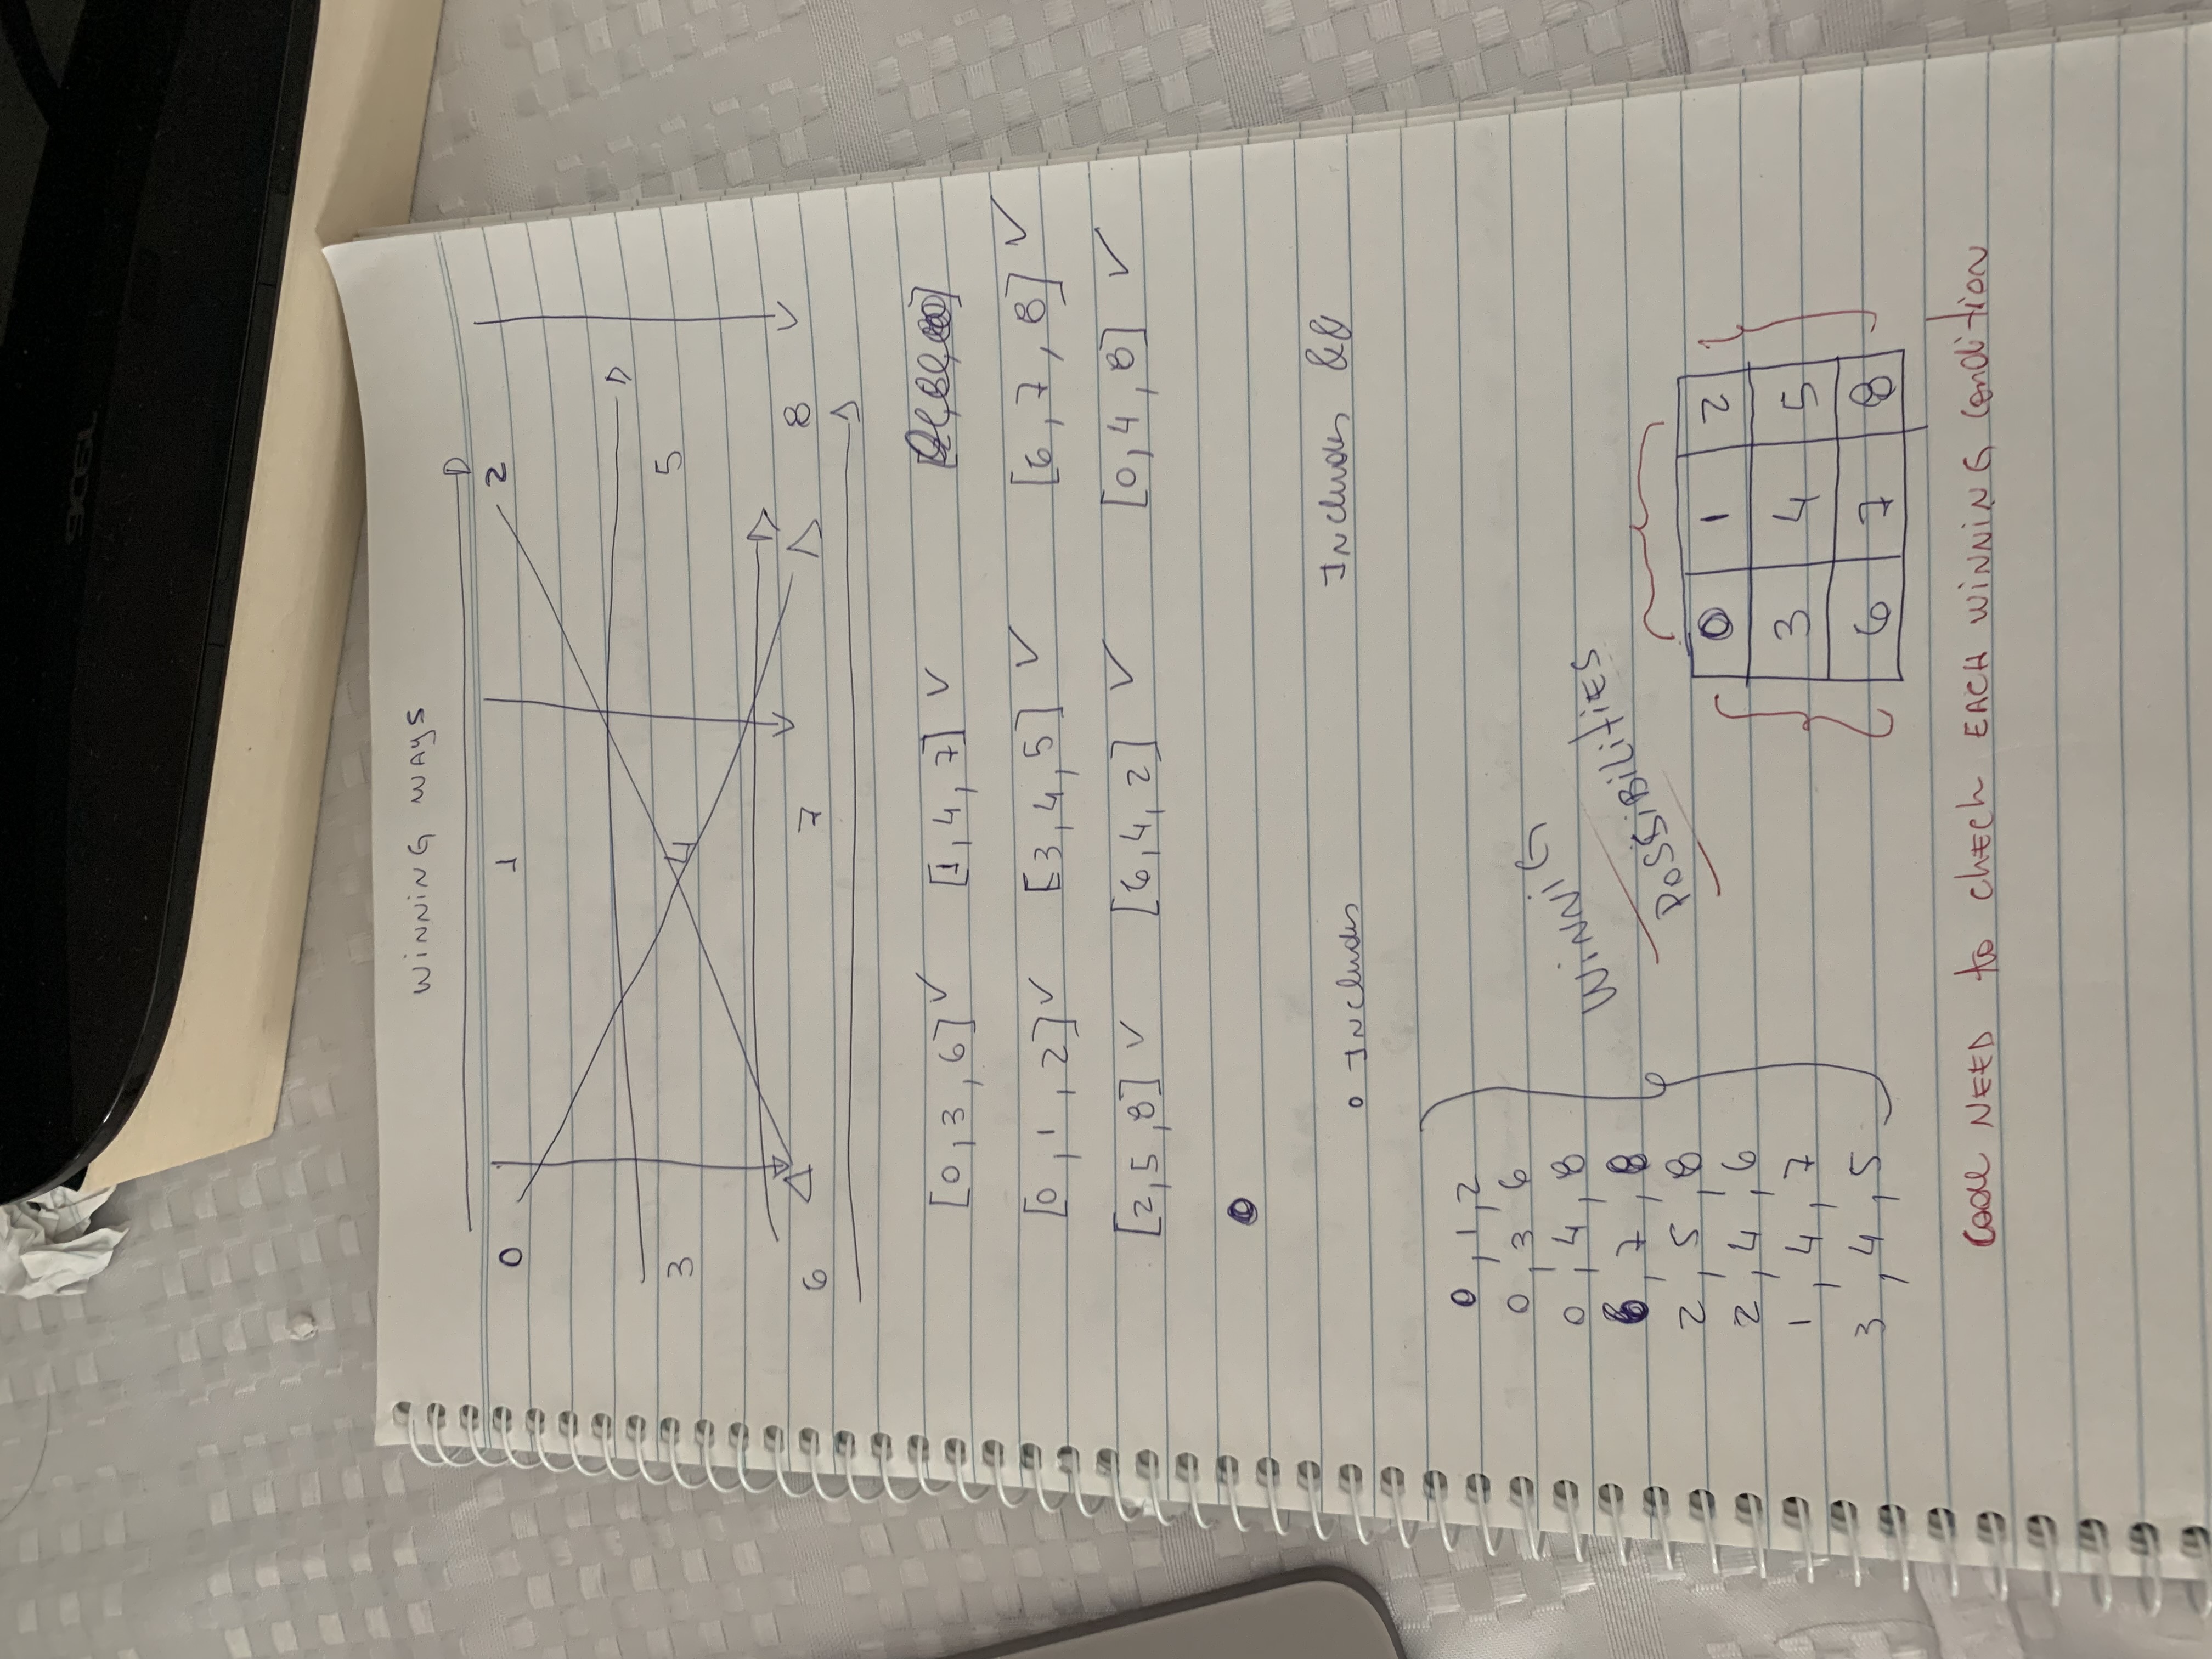 acer
WINNING WAYS
0 1 2
3 4 5
6 7 8
[0,3,6] ✓ [1,4,7] ✓
[0,1,2] ✓ [3,4,5] ✓ [6,7,8] ✓
[2,5,8] ✓ [6,4,2] ✓ [0,4,8] ✓
0
0 Includes Includes &&
0,1,2
0,3 6
0,4,8
6,7,8
2,5,8
2,4,6
1,4,7
3,4,5
WINNIG
POSSIBILITIES
0 1 2
3 4 5
6 7 8
Code NEED to chEck EACH WINNING Condition